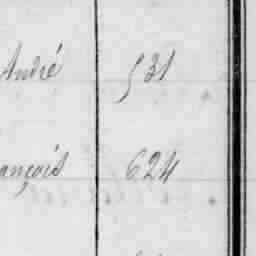 André 531
ançois 624